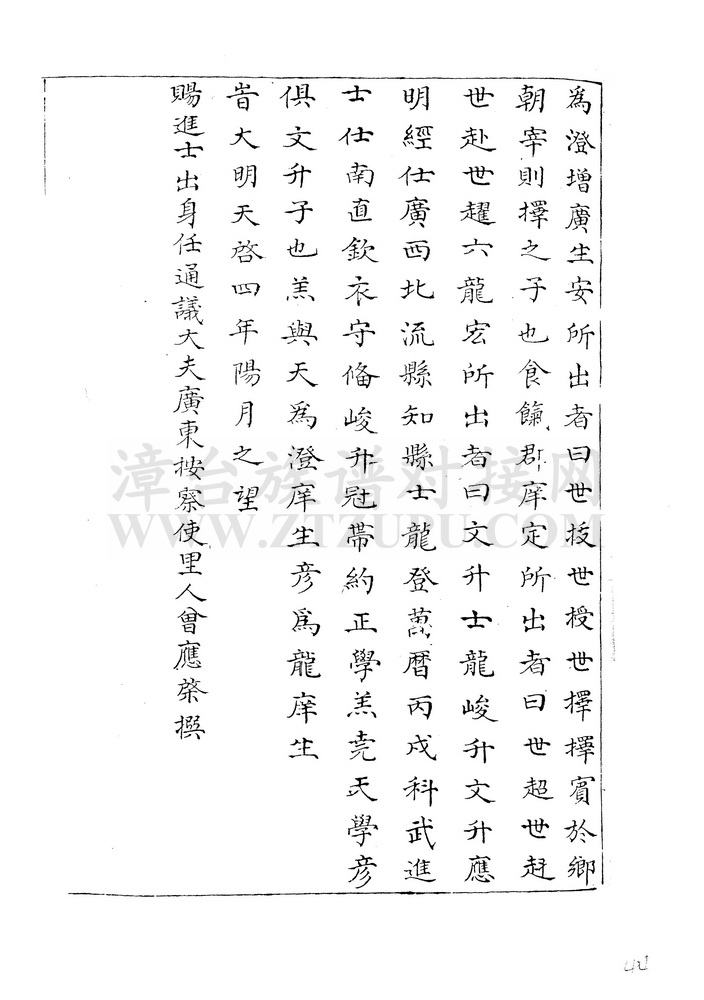 為澄增廣生安所出者曰世技世授世擇擇賓於鄉
朝宰則擇之子也食餼郡庠定所出者曰世超世赶
世赴世趯六龍宏所出者曰文升士龍峻升文升應
明經仕廣西北流縣知縣士龍登萬曆丙戌科武進
士仕南直欽衣守俻峻升冠帶約正學羔堯天學彦
俱文升子也羔與天為澄庠生彦為龍庠生
旹大明天啓四年陽月之望
賜進士出身任通議大夫廣東按察使里人曾應棨撰
漳台族谱对接网
WWW.ZTZUPU.COM